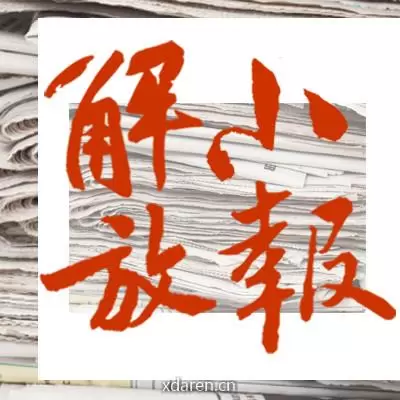 解放
小報
xdaren.cn